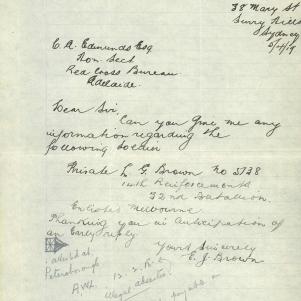 38 Mary St
Surry Hills
Sydney
C. A. Edmunds Esq
Hon. Sect
Red Cross Bureau
Adelaide.
Dear Sir
Can you give me any
information regarding the
following soldier
Private L G Brown No 5738
Reinforcements
32nd Battalion
Melbourne
Thanking you in anticipation of
an Early reply
Yours Sincerely
E. J Brown
Peterborough